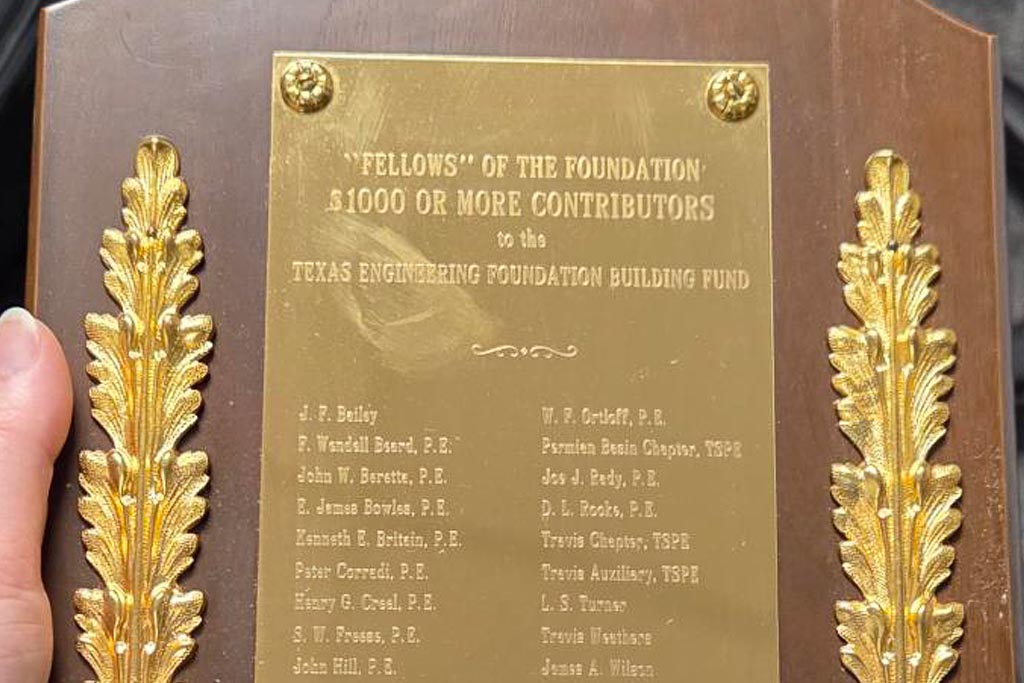 "FELLOWS" OF THE FOUNDATION
$1000 OR MORE CONTRIBUTORS
to the
TEXAS ENGINEERING FOUNDATION BUILDING FUND
J. F. Bailey
F. Wendell Beard, P.E.
John W. Beretta, P.E.
E. James Bowles, P.E.
Kenneth E. Britain, P.E.
Peter Corradi, P.E.
Henry G. Creel, P.E.
S. W. Freese, P.E.
John Hill, P.E.
W. F. Ortloff, P.E.
Permian Basin Chapter, TSPE
Joe J. Rady, P.E.
D. L. Rooke, P.E.
Travis Chapter, TSPE
Travis Auxiliary, TSPE
L. S. Turner
Travis Weathers
James A. Wilson